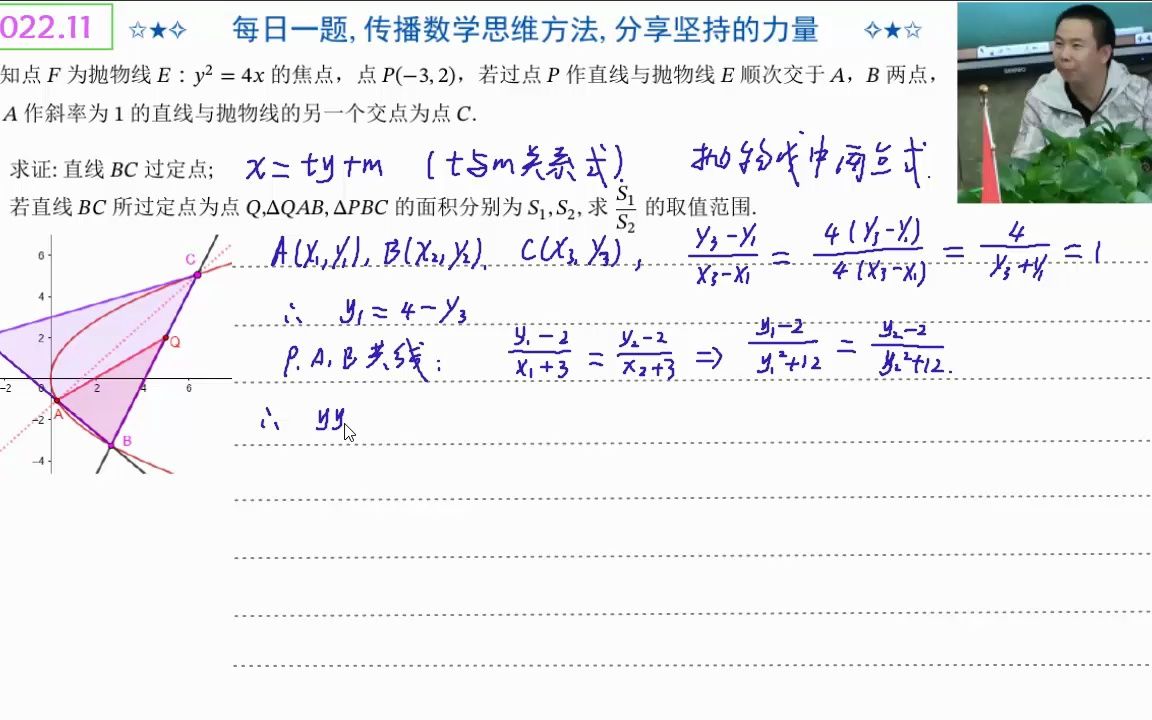 022.11 ☆★✧ 每日一题, 传播数学思维方法, 分享坚持的力量 ✧★☆
知点 F 为抛物线 E : y² = 4x 的焦点，点 P(−3, 2)，若过点 P 作直线与抛物线 E 顺次交于 A，B 两点，
A 作斜率为 1 的直线与抛物线的另一个交点为点 C.
求证: 直线 BC 过定点; x = ty + m （t与m关系式） 抛物线中两点式.
若直线 BC 所过定点为点 Q,ΔQAB, ΔPBC 的面积分别为 S₁, S₂, 求 S₁/S₂ 的取值范围.
A(x₁,y₁), B(x₂,y₂). C(x₃,y₃), (y₃−y₁)/(x₃−x₁) = 4(y₃−y₁)/4(x₃−x₁) = 4/(y₃+y₁) = 1
∴ y₁ = 4 − y₃
P. A. B 共线: (y₁−2)/(x₁+3) = (y₂−2)/(x₂+3) ⇒ (y₁−2)/(y₁²+12) = (y₂−2)/(y₂²+12).
∴ yy
6
4
2
−2
−4
−2 0 2 4 6
C
Q
A
B
SANPNO